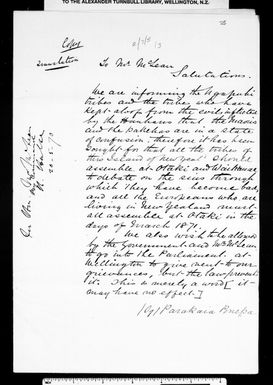 TO THE ALEXANDER TURNBULL LIBRARY, WELLINGTON, N.Z.
Copy
Translation
To Mr. McLean
Salutations.
We are informing the Ngapuhi
tribes and the tribes who have
kept aloof from the evils inflicted
by the Hauhaus that the Maoris
and the pakehas are in a state
of confusion, therefore it has been
sought for that all the tribes of
this Island of New Zeald. should
assemble at Otaki and Waikanae
to debate on the sins through
which they have become bad,
and all the Europeans who are
living in New Zealand must
all assemble at Otaki in the
days of March 1871.
We also wish to be allowed
by the Government and Mr. McLean
to go into the Parliament at
Wellington to give vent to our
grievances, but the law prevents
it. This is merely a word [it
may have no effect.]
(Sg) Parakaia